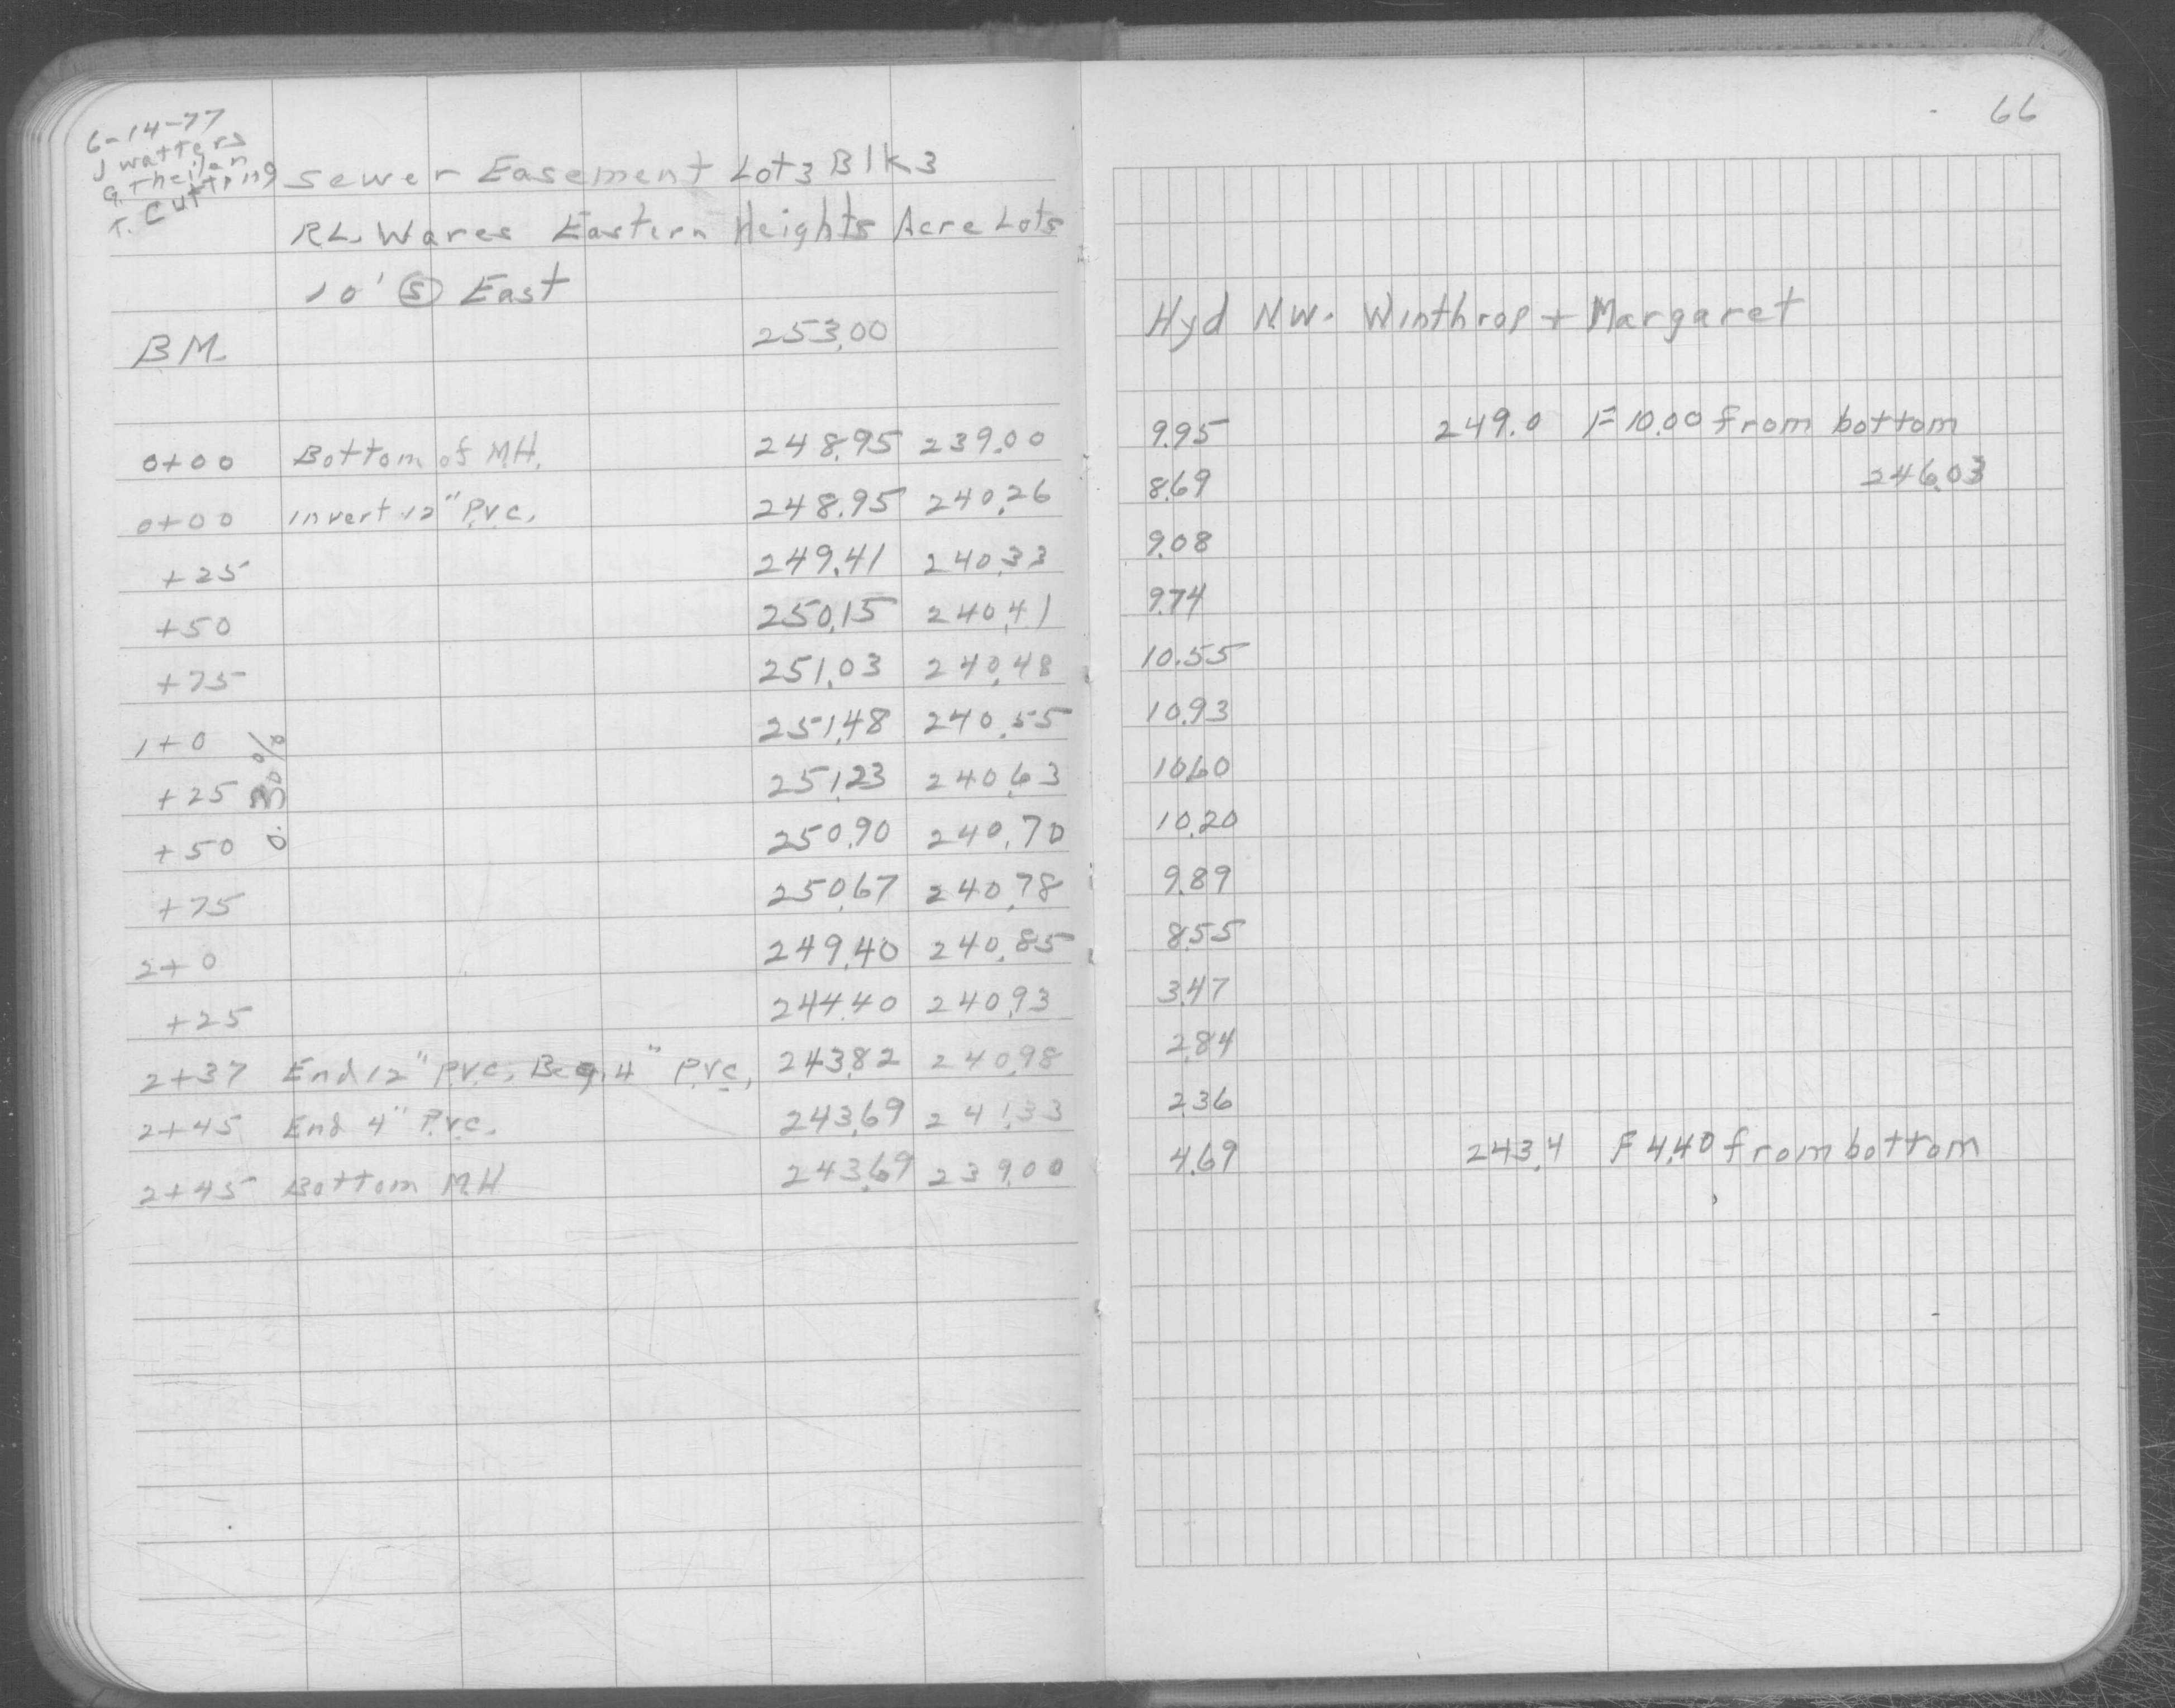 66
6-14-77
J Watters
G. Theilan
T. Cutting
Sewer Easement Lot 3 Blk 3
R.L. Wares Eastern Heights Acre Lots
10' Ⓢ East
BM. 253.00 Hyd N.W. Winthrop + Margaret
0+00 Bottom of M.H. 248.95 239.00 9.95 249.0 F 10.00 from bottom
0+00 Invert 12" P.V.C. 248.95 240.26 8.69 246.03
+25 249.41 240.33 9.08
+50 250.15 240.41 9.74
+75 251.03 240.48 10.55
1+0 251.48 240.55 10.93
+25 251.23 240.63 10.60
0.30%
+50 250.90 240.70 10.20
+75 250.67 240.78 9.89
2+0 249.40 240.85 8.55
+25 244.40 240.93 3.47
2+37 End 12" P.V.C. Beg. 4" P.V.C. 243.82 240.98 2.84
2+45 End 4" P.V.C. 243.69 241.33 2.36
2+45 Bottom M.H 243.69 239.00 4.69 243.4 F 4.40 from bottom